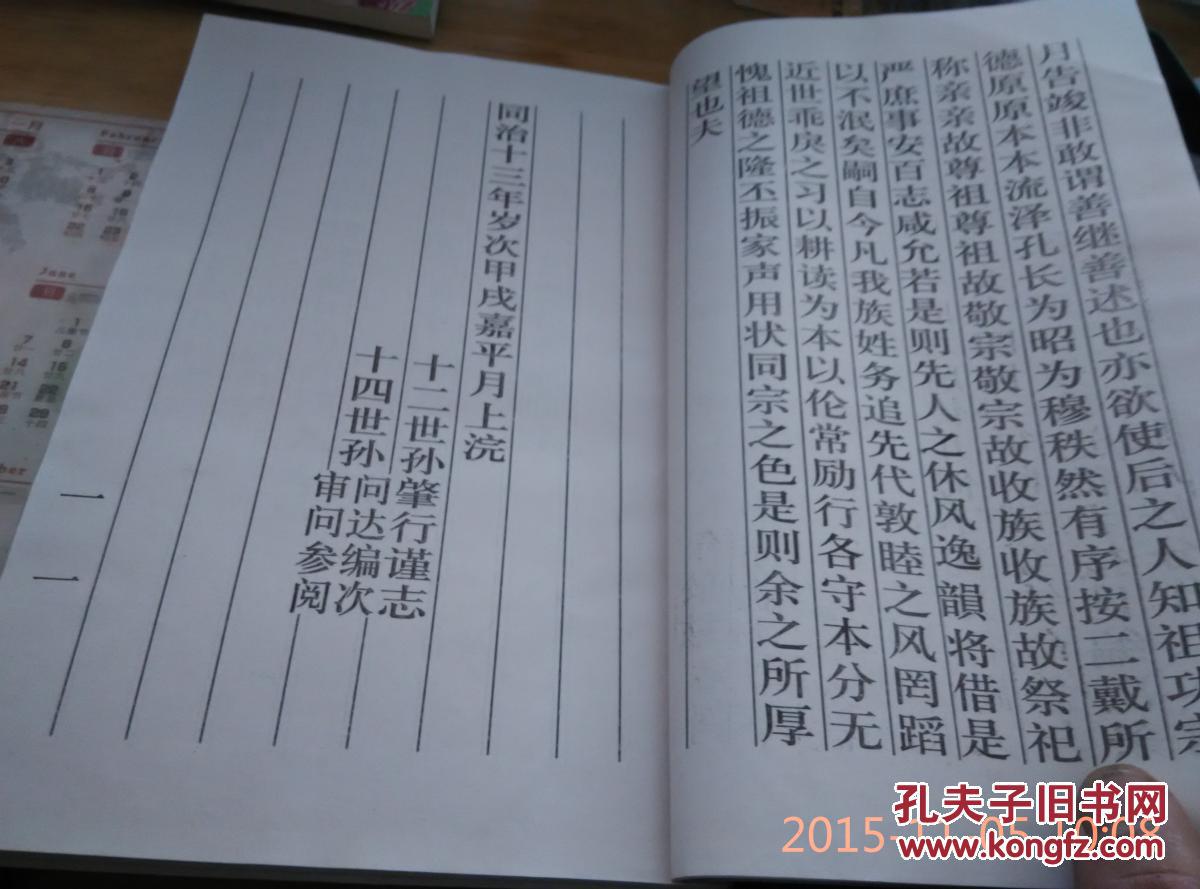 月告竣非敢谓善继善述也亦欲使后之人知祖功宗
德原原本本流泽孔长为昭为穆秩然有序按二戴所
称亲亲故尊祖尊祖故敬宗敬宗故收族收族故祭祀
严庶事安百志咸允若是则先人之休风逸韻将借是
以不泯矣嗣自今凡我族姓务追先代敦睦之风罔蹈
近世乖戾之习以耕读为本以伦常励行各守本分无
愧祖德之隆丕振家声用状同宗之色是则余之所厚
望也夫
同治十三年岁次甲戌嘉平月上浣
十二世孙肇行谨志
十四世孙问达编次
审问参阅
一一
孔夫子旧书网
www.kongfz.com
2015-11-05 10:08